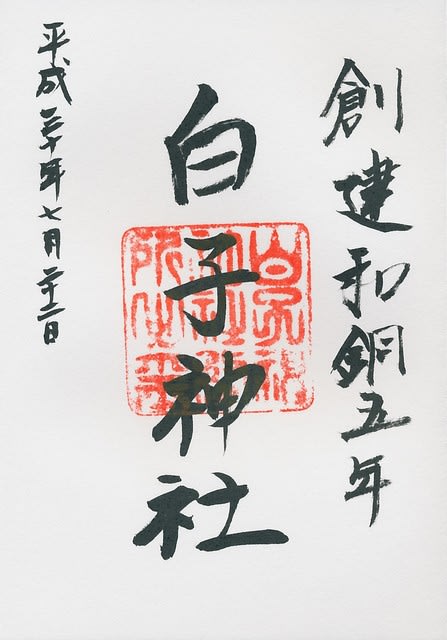 創建和銅五年
白子神社
平成三十年七月二十二日